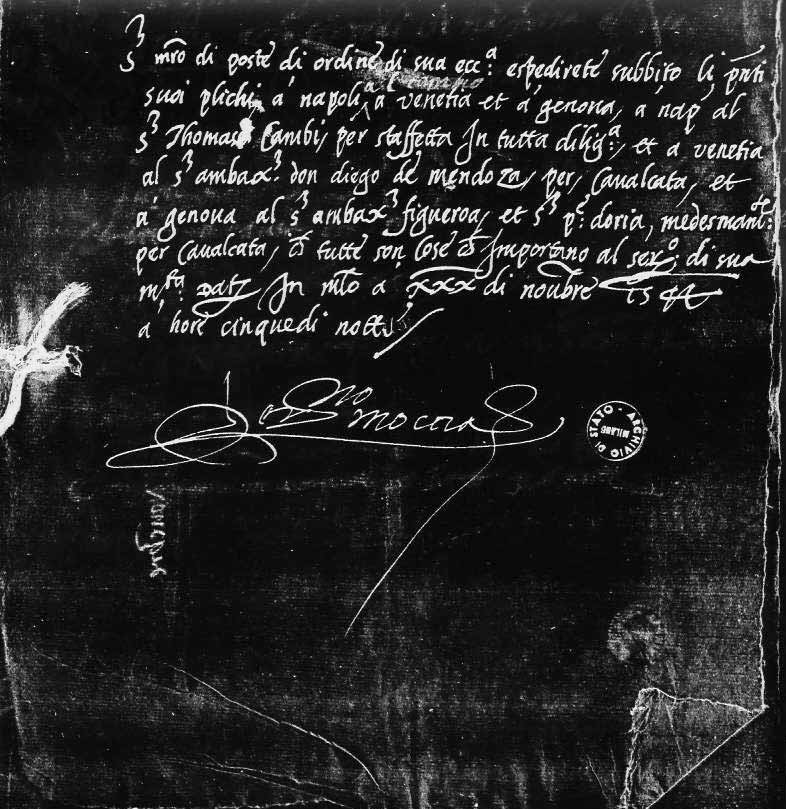 S^r mrõ di poste di ordine di sua ecc^a: espedirete subbito li p̃nti
suoi plichi, a' napoli, a venetia et a' genova, a nap' al
s^r Thomaso Cambi, per staffetta In tutta dilig^a:, et a venetia
al s^r ambax^r: don diego de mendoza, per, Cavalcata, et
a' genova al s^r ambax^r figueroa, et s^r p^e: doria, medesmam^te:
per Cavalcata, tutte son Cose Importano al ser^o: di sua
m^tà: Datz In mlõ a xxx di noubre 1544
a' hore cinque di notte
ARCHIVIO DI STATO
MILANO